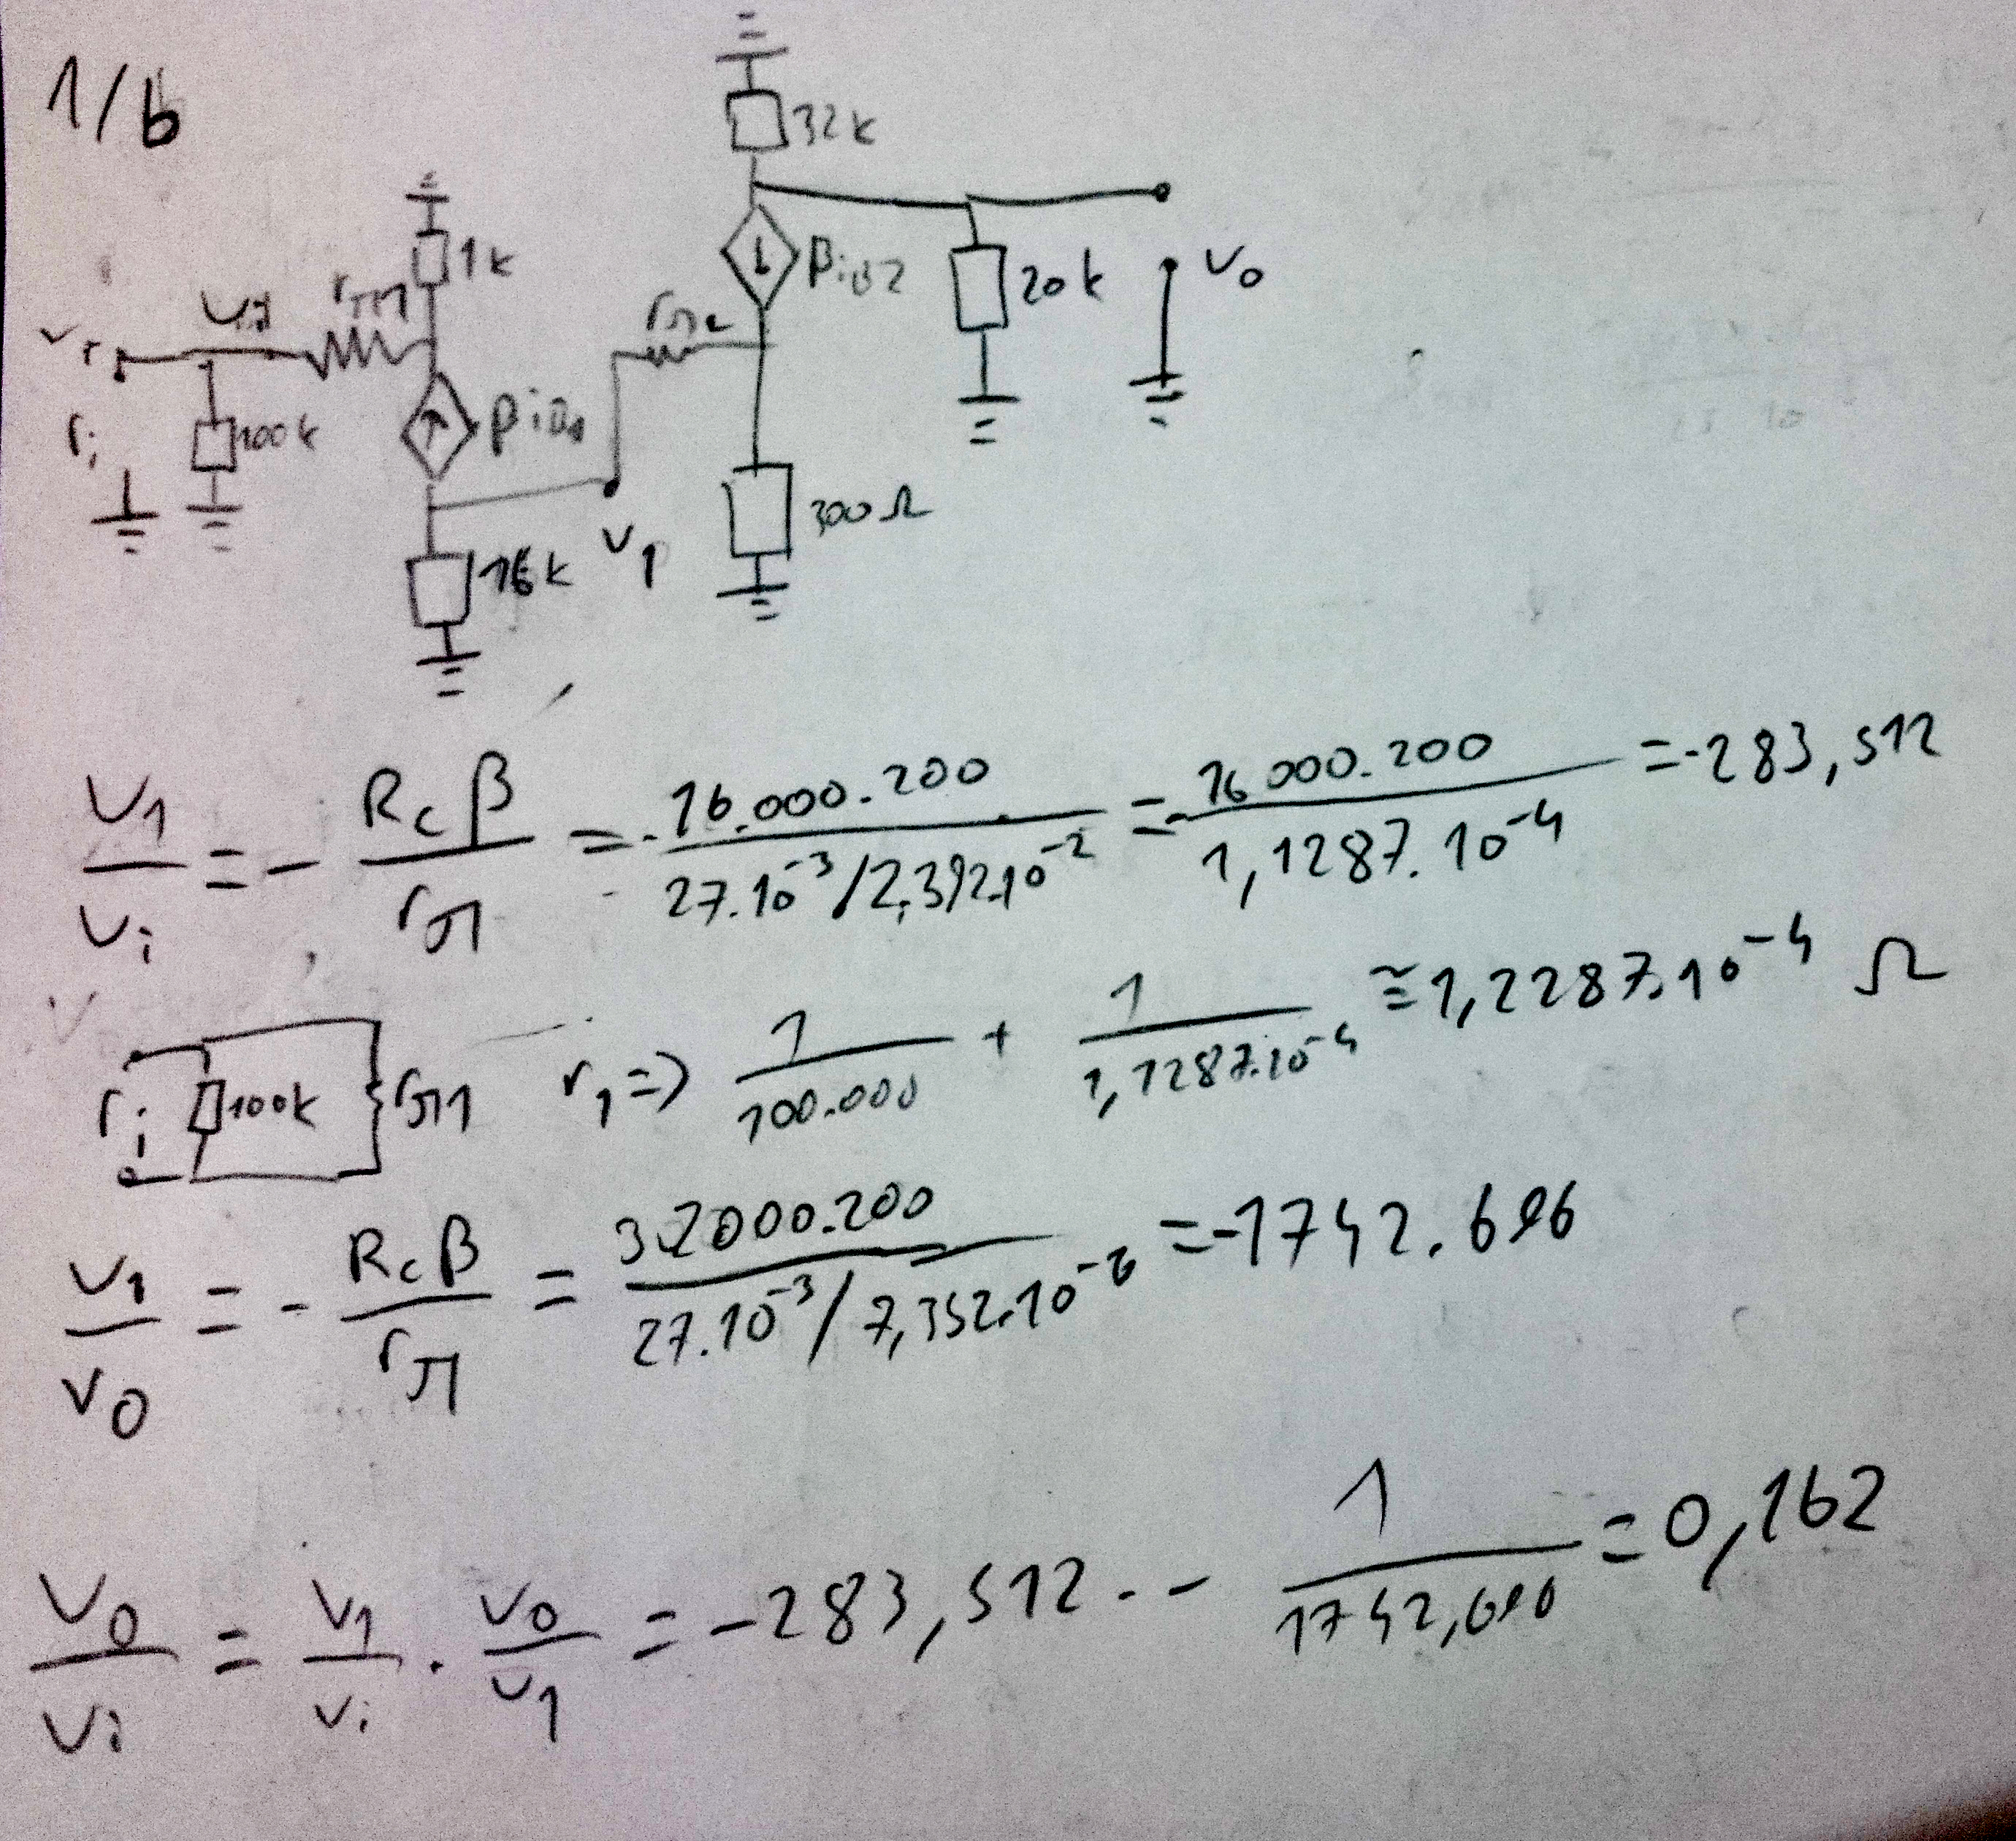 1/b
32k
1k
βiB2
20k
vo
rπ1
rπ2
vi
ri
100k
βiB1
300Ω
16k
v1
v1/vi = - Rcβ/rπ = - 16.000.200 / 27.10⁻³/2,392.10⁻² = - 16000.200 / 1,1287.10⁻⁴ = -283,512
ri 100k rπ1 r1 => 1/100.000 + 1/1,1287.10⁻⁴ ≅ 1,2287.10⁻⁴ Ω
v1/vo = - Rcβ/rπ = 32000.200 / 27.10⁻³/7,352.10⁻⁶ = -1742.696
vo/vi = v1/vi . vo/v1 = -283,512 . - 1/1742,690 = 0,162